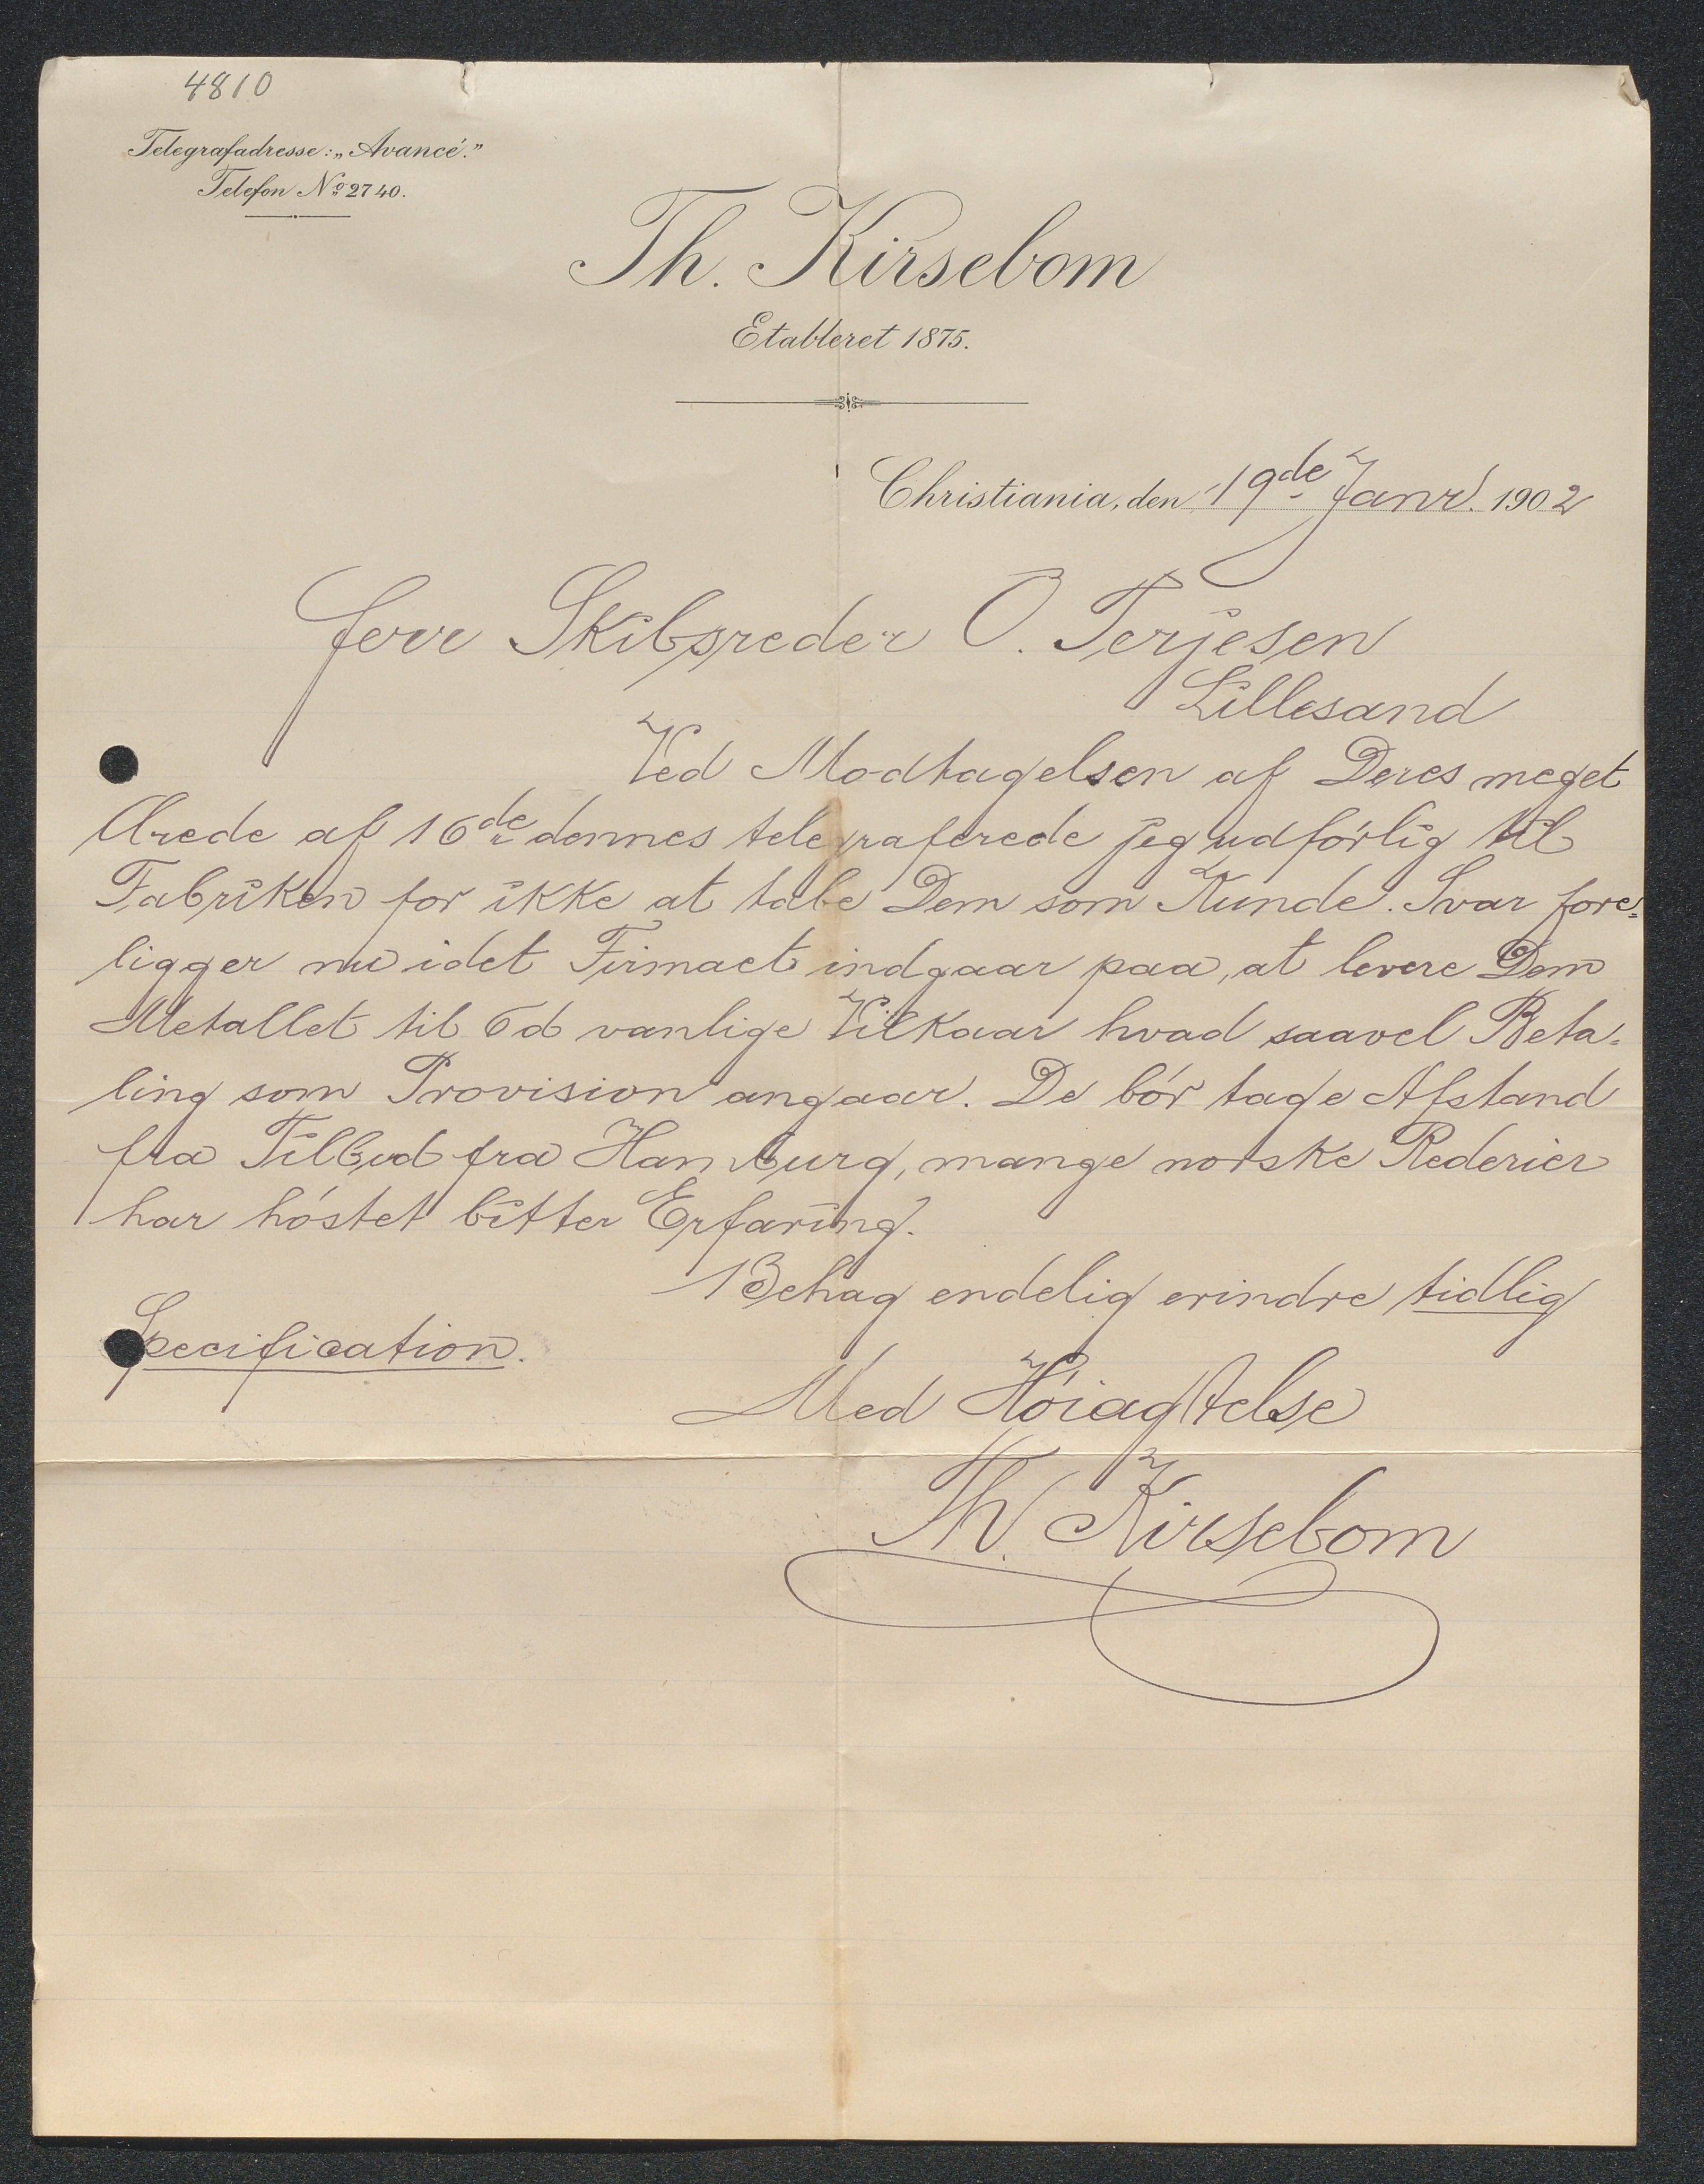 4810
Telegrafadresse: „Avancé.”
Telefon No 2740.
Th. Kirsebom
Etableret 1875.
Christiania, den 19de Janr. 1902
Herr Skibsreder O. Terjesen
Lillesand
Ved Modtagelsen af Deres meget
Ærede af 16de dennes telegraferede jeg udförlig til
Fabriken for ikke at tabe Dem som Kunde. Svar fore=
ligger nu idet Firmaet indgaar paa, at levere Dem
Metallet til 6d vanlige Vilkaar hvad saavel Beta=
ling som Provision angaar. De bör tage Afstand
fra Tilbud fra Hamburg, mange norske Rederier
har höstet bitter Erfaring.
Behag endelig erindre tidlig
Specification.
Med Höiagtelse
Th. Kirsebom